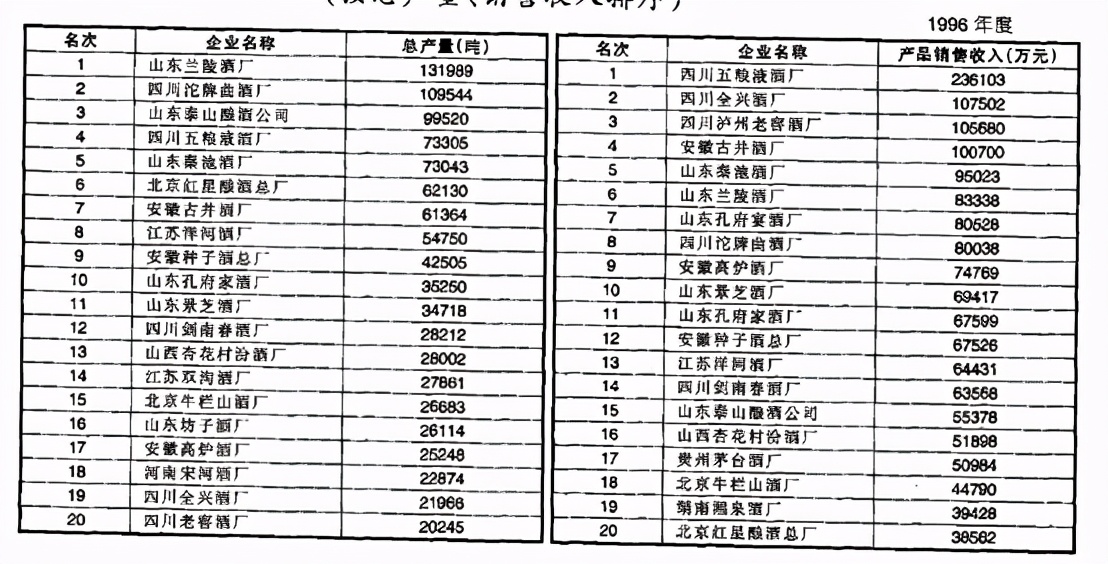 (按总产量、销售收入排序)
1996 年度
名次 企业名称 总产量(吨)
1 山东兰陵酒厂 131989
2 四川沱牌曲酒厂 109544
3 山东泰山酿酒公司 99520
4 四川五粮液酒厂 73305
5 山东秦池酒厂 73043
6 北京红星酿酒总厂 62130
7 安徽古井酒厂 61364
8 江苏洋河酒厂 54750
9 安徽种子酒总厂 42505
10 山东孔府家酒厂 35250
11 山东景芝酒厂 34718
12 四川剑南春酒厂 28212
13 山西杏花村汾酒厂 28002
14 江苏双沟酒厂 27861
15 北京牛栏山酒厂 26683
16 山东坊子酒厂 26114
17 安徽高炉酒厂 25248
18 河南宋河酒厂 22874
19 四川全兴酒厂 21966
20 四川老窖酒厂 20245
名次 企业名称 产品销售收入(万元)
1 四川五粮液酒厂 236103
2 四川全兴酒厂 107502
3 四川泸州老窖酒厂 105680
4 安徽古井酒厂 100700
5 山东秦池酒厂 95023
6 山东兰陵酒厂 83338
7 山东孔府宴酒厂 80528
8 四川沱牌曲酒厂 80038
9 安徽高炉酒厂 74769
10 山东景芝酒厂 69417
11 山东孔府家酒厂 67599
12 安徽种子酒总厂 67526
13 江苏洋河酒厂 64431
14 四川剑南春酒厂 63568
15 山东泰山酿酒公司 55378
16 山西杏花村汾酒厂 51898
17 贵州茅台酒厂 50984
18 北京牛栏山酒厂 44790
19 湖南湘泉酒厂 39428
20 北京红星酿酒总厂 38562